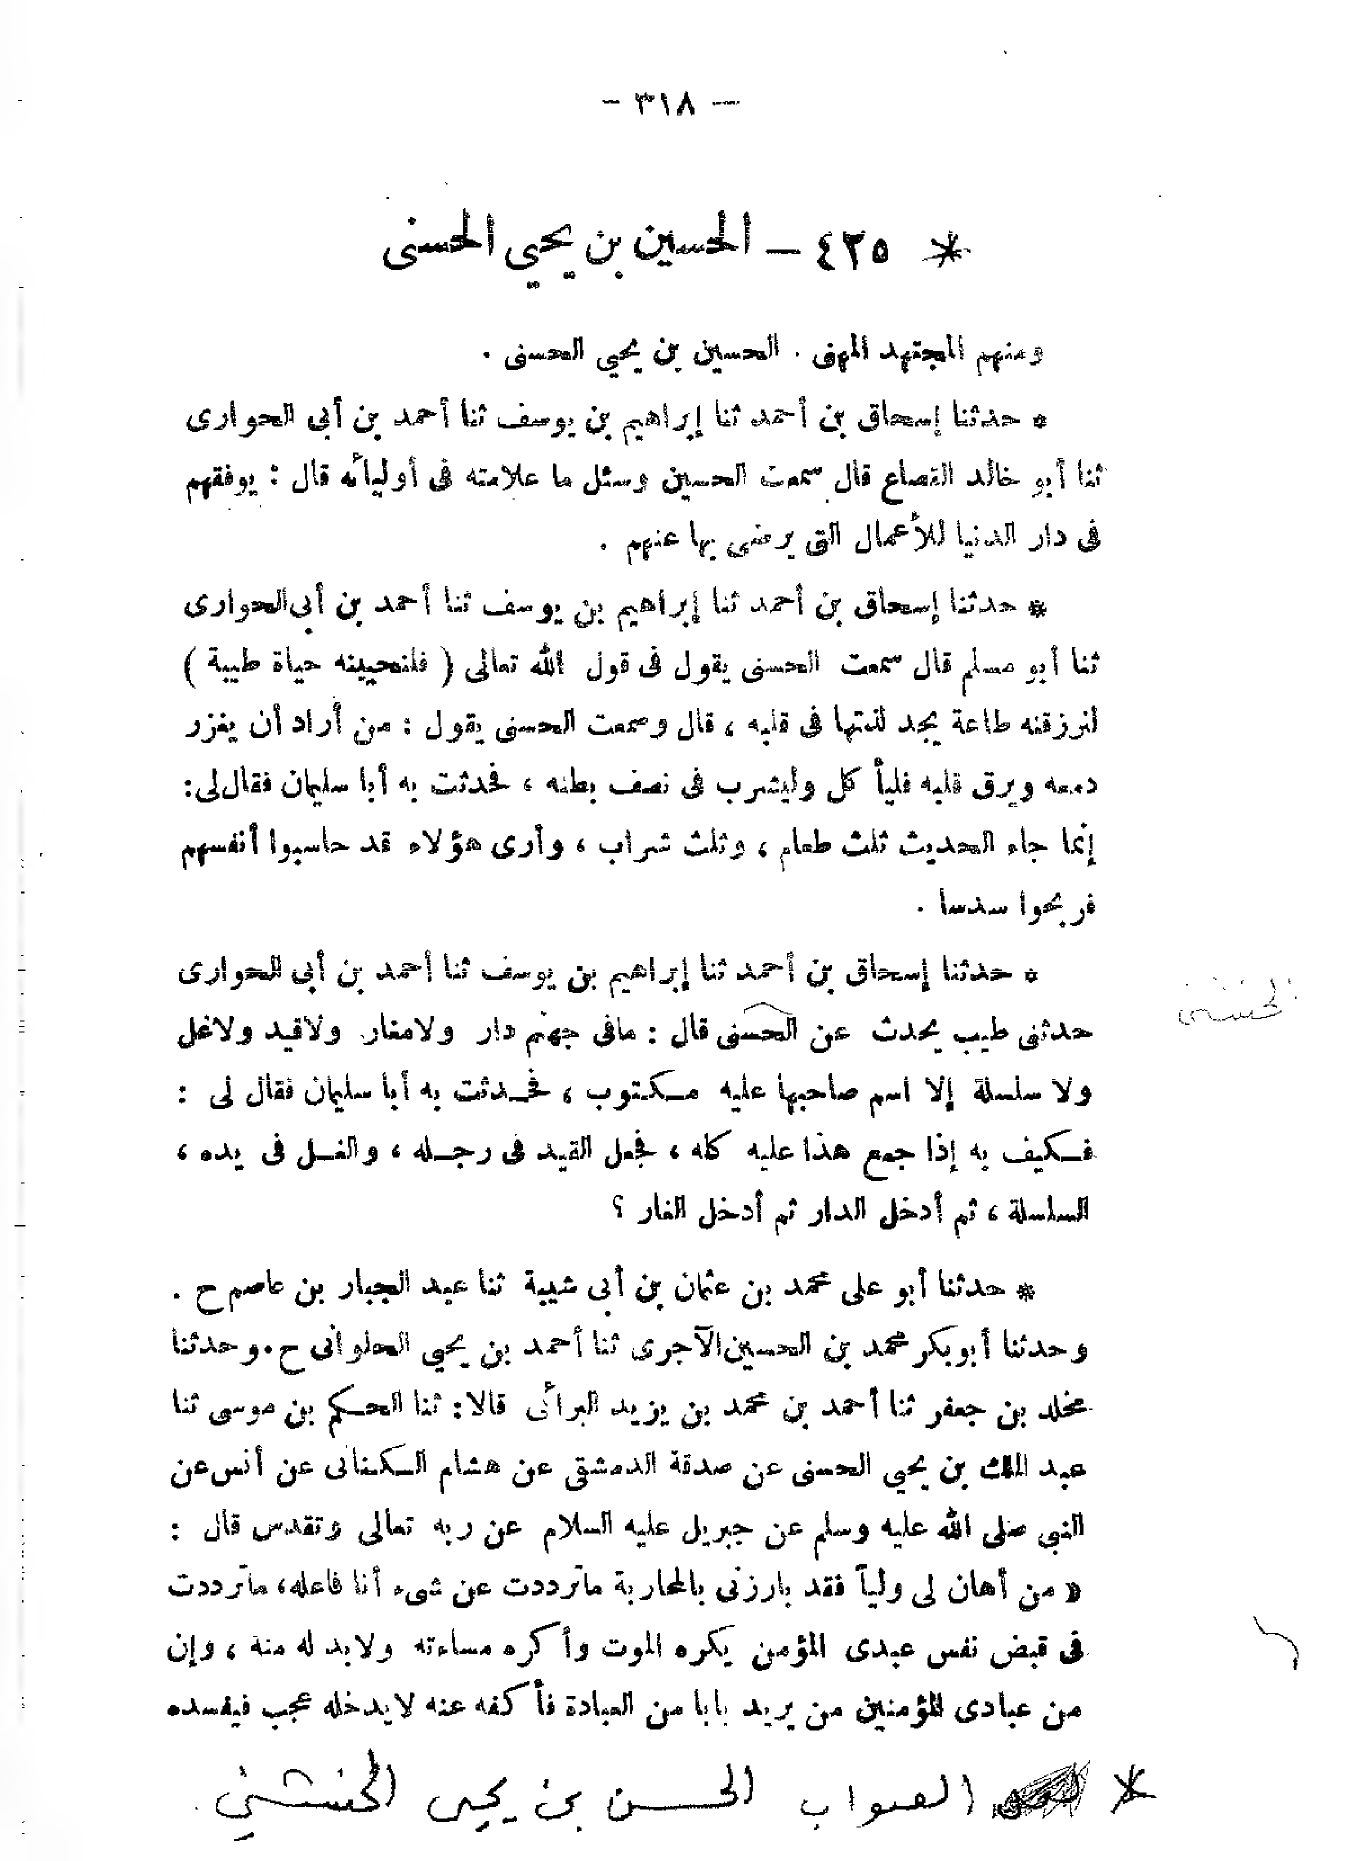 — ٣١٨ —
* ٤٢٥ — الحسين بن يحيي الحسنى
ومنهم المجتهد المهنى . الحسين بن يحيي الحسنى .
* حدثنا إسحاق بن أحمد ثنا إبراهيم بن يوسف ثنا أحمد بن أبى الحوارى
ثنا أبو خالد القصاع قال سمعت الحسين وسئل ما علامته فى أوليائه قال : يوفقهم
فى دار الدنيا للأعمال التى يرضى بها عنهم .
* حدثنا إسحاق بن أحمد ثنا إبراهيم بن يوسف ثنا أحمد بن أبى الحوارى
ثنا أبو مسلم قال سمعت الحسنى يقول فى قول الله تعالى ( فلنحيينه حياة طيبة )
لنرزقنه طاعة يجد لذتها فى قلبه ، قال وسمعت الحسنى يقول : من أراد أن يغزر
دمعه ويرق قلبه فليأ كل وليشرب فى نصف بطنه ، فحدثت به أبا سليمان فقال لى :
إنما جاء الحديث ثلث طعام ، وثلث شراب ، وأرى هؤلاء قد حاسبوا أنفسهم
فربحوا سدسا .
* حدثنا إسحاق بن أحمد ثنا إبراهيم بن يوسف ثنا أحمد بن أبى الحوارى
حدثنى طيب يحدث عن الحسنى قال : مافى جهنم دار ولامغار ولاقيد ولاغل
الخشنى
ولا سلسلة إلا اسم صاحبها عليه مكتوب ، فحدثت به أبا سليمان فقال لى :
فكيف به إذا جمع هذا عليه كله ، فجعل القيد فى رجله ، والغل فى يده ،
السلسلة ، ثم أدخل الدار ثم أدخل الغار ؟
* حدثنا أبو على محمد بن عثمان بن أبى شيبة ثنا عبد الجبار بن عاصم ح .
وحدثنا أبو بكر محمد بن الحسين الآجرى ثنا أحمد بن يحيي الحلوانى ح . وحدثنا
مخلد بن جعفر ثنا أحمد بن محمد بن يزيد البرائى قالا : ثنا الحكم بن موسى ثنا
عبد الملك بن يحيي الحسنى عن صدقة الدمشقى عن هشام الكنانى عن أنس عن
النبى صلى الله عليه وسلم عن جبريل عليه السلام عن ربه تعالى وتقدس قال :
« من أهان لى ولياً فقد بارزنى بالمحاربة ماترددت عن شىء أنا فاعله، ماترددت
فى قبض نفس عبدى المؤمن يكره الموت وأ كره مساءته ولابد له منة ، وإن
من عبادى المؤمنين من يريد بابا من العبادة فأ كفه عنه لايدخله عجب فيفسده
* الصواب الحسن بن يحيى الخشني .